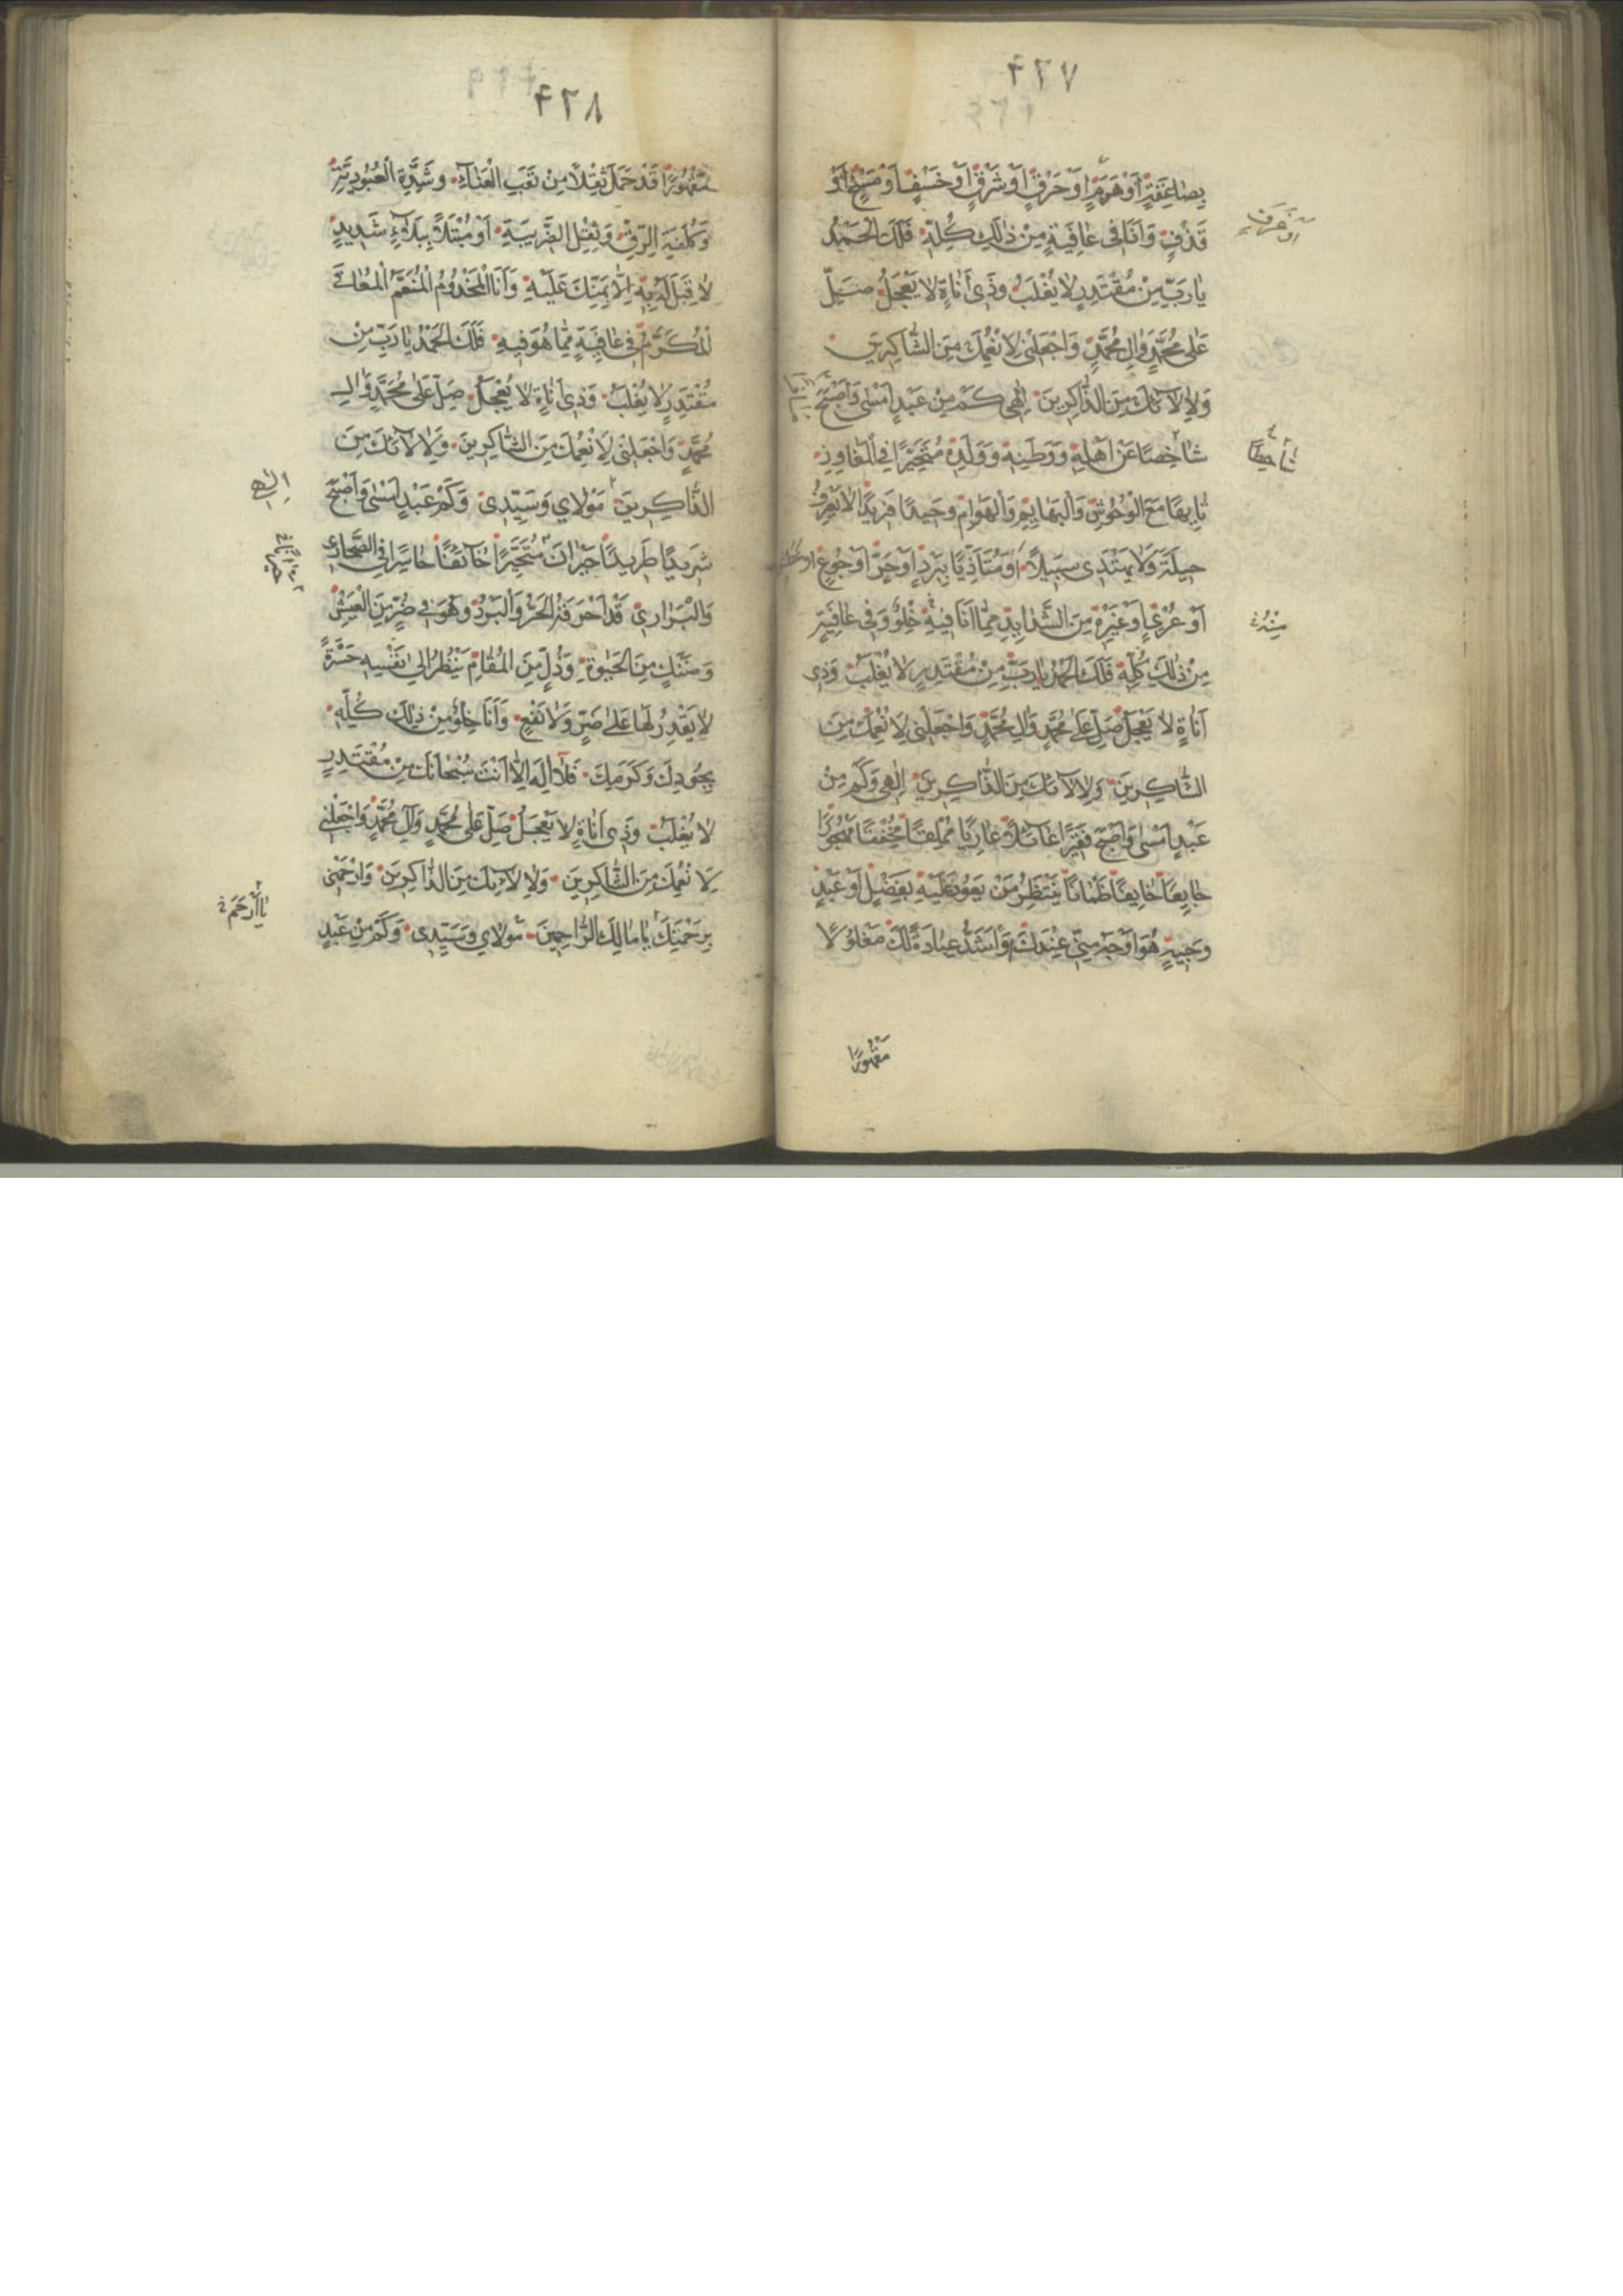 ۴۲۷
بِصاعِقَةٍ اَوْ هَدَمٍ اَوْ حَرْقٍ اَوْ شَرْقٍ اَوْ خَسْفٍ اَوْ مَسْخٍ اَوْ
قَذْفٍ وَاَنَا فى عافِيَةٍ مِنْ ذٰلِكَ كُلِّهِ فَلَكَ الْحَمْدُ
يا رَبِّ مِنْ مُقْتَدِرٍ لا يُغْلَبُ وَذى اَناةٍ لا يَعْجَلُ صَلِّ
عَلى مُحَمَّدٍ وَالِ مُحَمَّدٍ وَاجْعَلْنى لِاَنْعُمِكَ مِنَ الشّاكِرينَ
وَلِالآئِكَ مِنَ الذّاكِرينَ اِلٰهى كَمْ مِنْ عَبْدٍ اَمْسٰى وَاَصْبَحَ
شاخِصًا عَنْ اَهْلِهِ وَوَطَنِهِ وَوَلَدِهِ مُتَحَيِّرًا فِى الْمَفاوِزِ
تايِهًا مَعَ الْوُحُوشِ وَالْبَهايِمِ وَالْهَوامِّ وَحيدًا فَريدًا لا يَعْرِفُ
حيلَةً وَلا يَهْتَدى سَبيلاً اَوْ مُتَاَذِّيًا بِبَرْدٍ اَوْ حَرٍّ اَوْ جُوعٍ
اَوْ عُرْىٍ اَوْ غَيْرِهِ مِنَ الشَّدايِدِ مِمّا اَنَا فيهِ خِلْوٌ وَفى عافِيَةٍ
مِنْ ذٰلِكَ كُلِّهِ فَلَكَ الْحَمْدُ يا رَبِّ مِنْ مُقْتَدِرٍ لا يُغْلَبُ وَذى
اَناةٍ لا يَعْجَلُ صَلِّ عَلى مُحَمَّدٍ وَالِ مُحَمَّدٍ وَاجْعَلْنى لِاَنْعُمِكَ مِنَ
الشّاكِرينَ وَلِالآئِكَ مِنَ الذّاكِرينَ اِلٰهى وَكَمْ مِنْ
عَبْدٍ اَمْسٰى وَاَصْبَحَ فَقيرًا عآئِلاً عارِيًا مُمْلِقًا مُخْفِقًا مَهْجُورًا
جايِعًا خايِفًا ظَمْانًا يَنْتَظِرُ مَنْ يَعُودُ عَلَيْهِ بِفَضْلٍ اَوْ عَبْدٍ
وَجيهٍ هُوَ اَوْجَهُ مِنّى عِنْدَكَ وَاَشَدُّ عِبادَةً لَكَ مَغْلُولاً
شاحِطًا
مَقْهُورًا
۴۲۸
مَقْهُورًا قَدْ حَمَلَ ثِقْلاً مِنْ تَعَبِ الْعَنآءِ وَشِدَّةِ الْعُبُودِيَّةِ
وَكُلْفَةِ الرِّقِّ وَثِقْلِ الضَّريبَةِ اَوْ مُبْتَلاً بِبَلآءٍ شَديدٍ
لا قِبَلَ لَهُ بِهِ اِلاّ بِمَنِّكَ عَلَيْهِ وَاَنَا الْمَخْدُومُ الْمُنَعَّمُ الْمُعافَى
الْمُكَرَّمُ فى عافِيَةٍ مِمّا هُوَ فيهِ فَلَكَ الْحَمْدُ يا رَبِّ مِنْ
مُقْتَدِرٍ لا يُغْلَبُ وَذى اَناةٍ لا يَعْجَلُ صَلِّ عَلى مُحَمَّدٍ وَالِ
مُحَمَّدٍ وَاجْعَلْنى لِاَنْعُمِكَ مِنَ الشّاكِرينَ وَلِالآئِكَ مِنَ
الذّاكِرينَ مَوْلاىَ وَسَيِّدى وَكَمْ عَبْدٍ اَمْسٰى وَاَصْبَحَ
شَريدًا طَريدًا حَيْرانَ مُتَحَيِّرًا خآئِفًا خاسِرًا فِى الصَّحارى
وَالْبَرارى قَدْ اَحْرَقَهُ الْحَرُّ وَالْبَرْدُ وَهُوَ فى ضُرٍّ مِنَ الْعَيْشِ
وَضَنْكٍ مِنَ الْحَيٰوةِ وَذُلٍّ مِنَ الْمُقامِ يَنْظُرُ اِلى نَفْسِهِ حَسْرَةً
لا يَقْدِرُ لَها عَلى ضَرٍّ وَلا نَفْعٍ وَاَنَا خِلْوٌ مِنْ ذٰلِكَ كُلِّهِ
بِجُودِكَ وَكَرَمِكَ فَلا اِلٰهَ اِلاّ اَنْتَ سُبْحانَكَ مِنْ مُقْتَدِرٍ
لا يُغْلَبُ وَذى اَناةٍ لا يَعْجَلُ صَلِّ عَلى مُحَمَّدٍ وَآلِ مُحَمَّدٍ وَاجْعَلْنى
لِاَنْعُمِكَ مِنَ الشّاكِرينَ وَلِالآئِكَ مِنَ الذّاكِرينَ وَارْحَمْنى
بِرَحْمَتِكَ يا مالِكَ الرّاحِمينَ مَوْلاىَ وَسَيِّدى وَكَمْ مِنْ عَبْدٍ
اِلٰهى
يا اَرْحَمَ